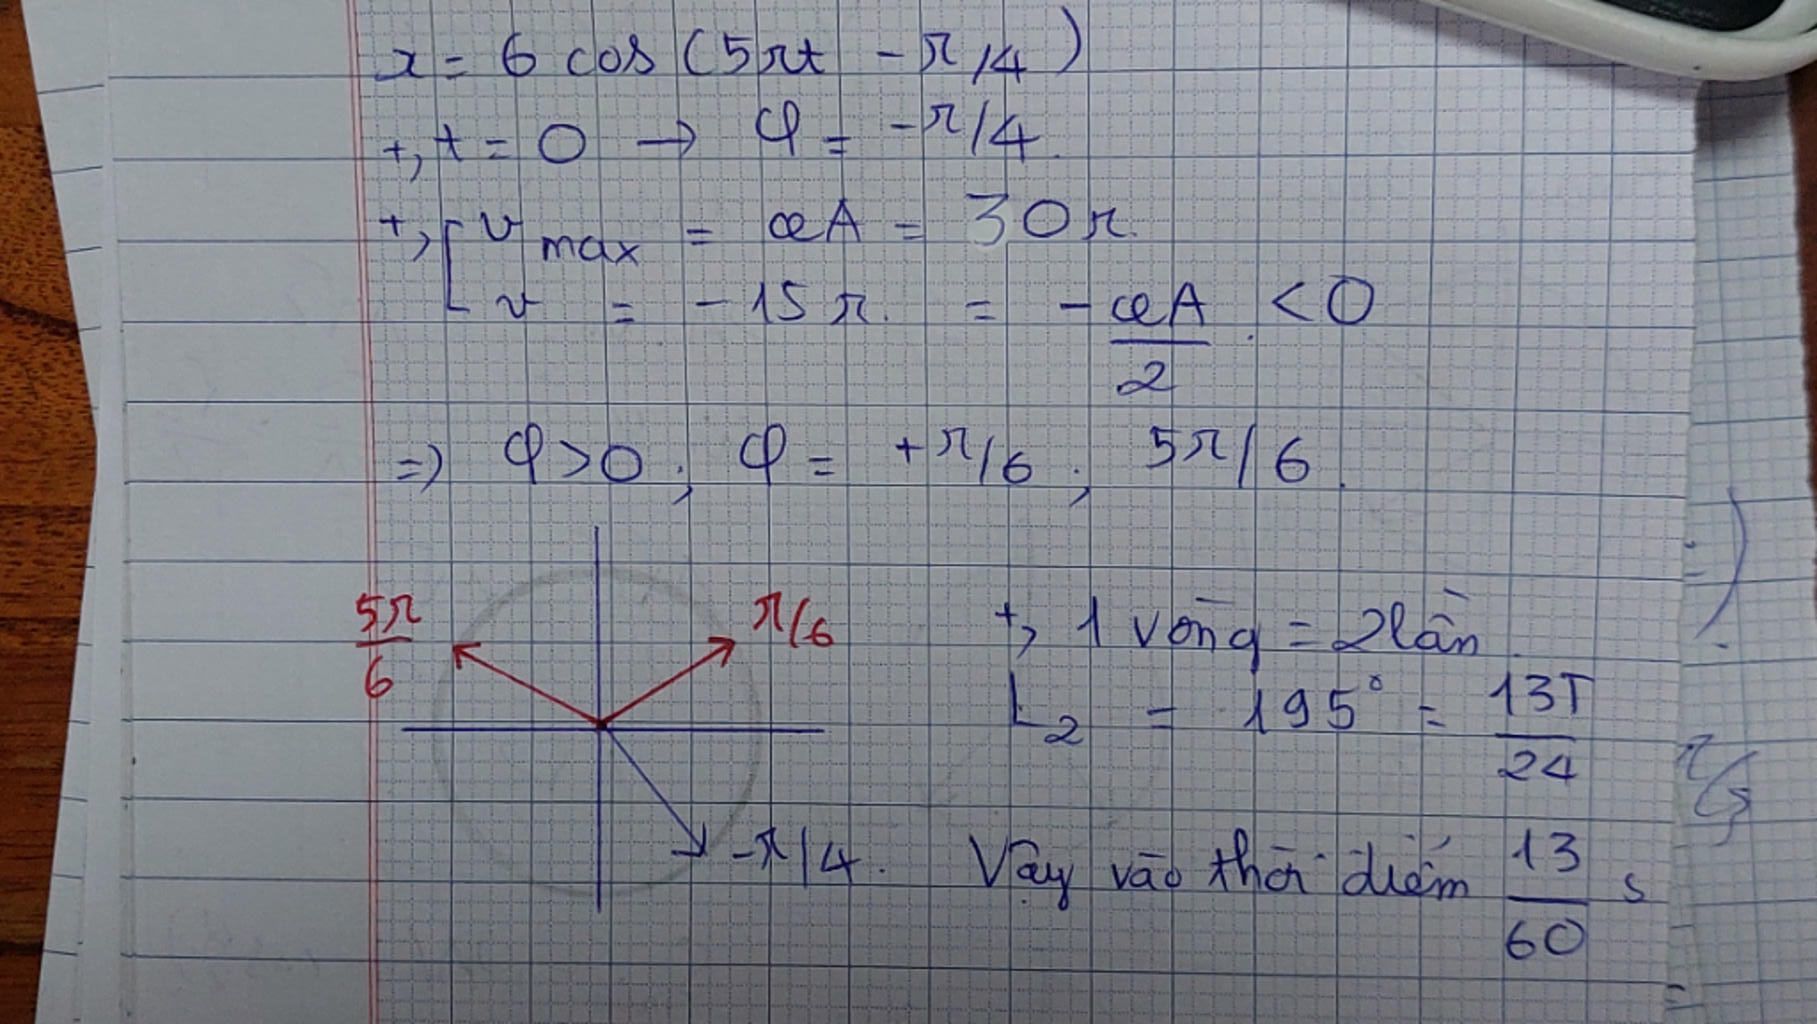 x = 6 cos (5πt - π/4)
+, t = 0 → φ = -π/4.
+, [ v max = ωA = 30π.
v = -15π. = - ωA/2 . < 0
=> φ > 0 ; φ = +π/6 ; 5π/6.
5π/6
π/6
-π/4.
+, 1 vòng = 2 lần.
L2 = 195° = 13T/24
Vậy vào thời điểm 13/60 s